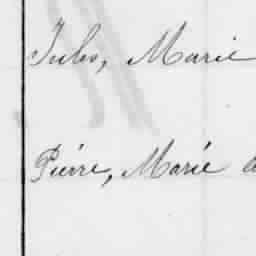 Jules, Marie
Pierre, Marie